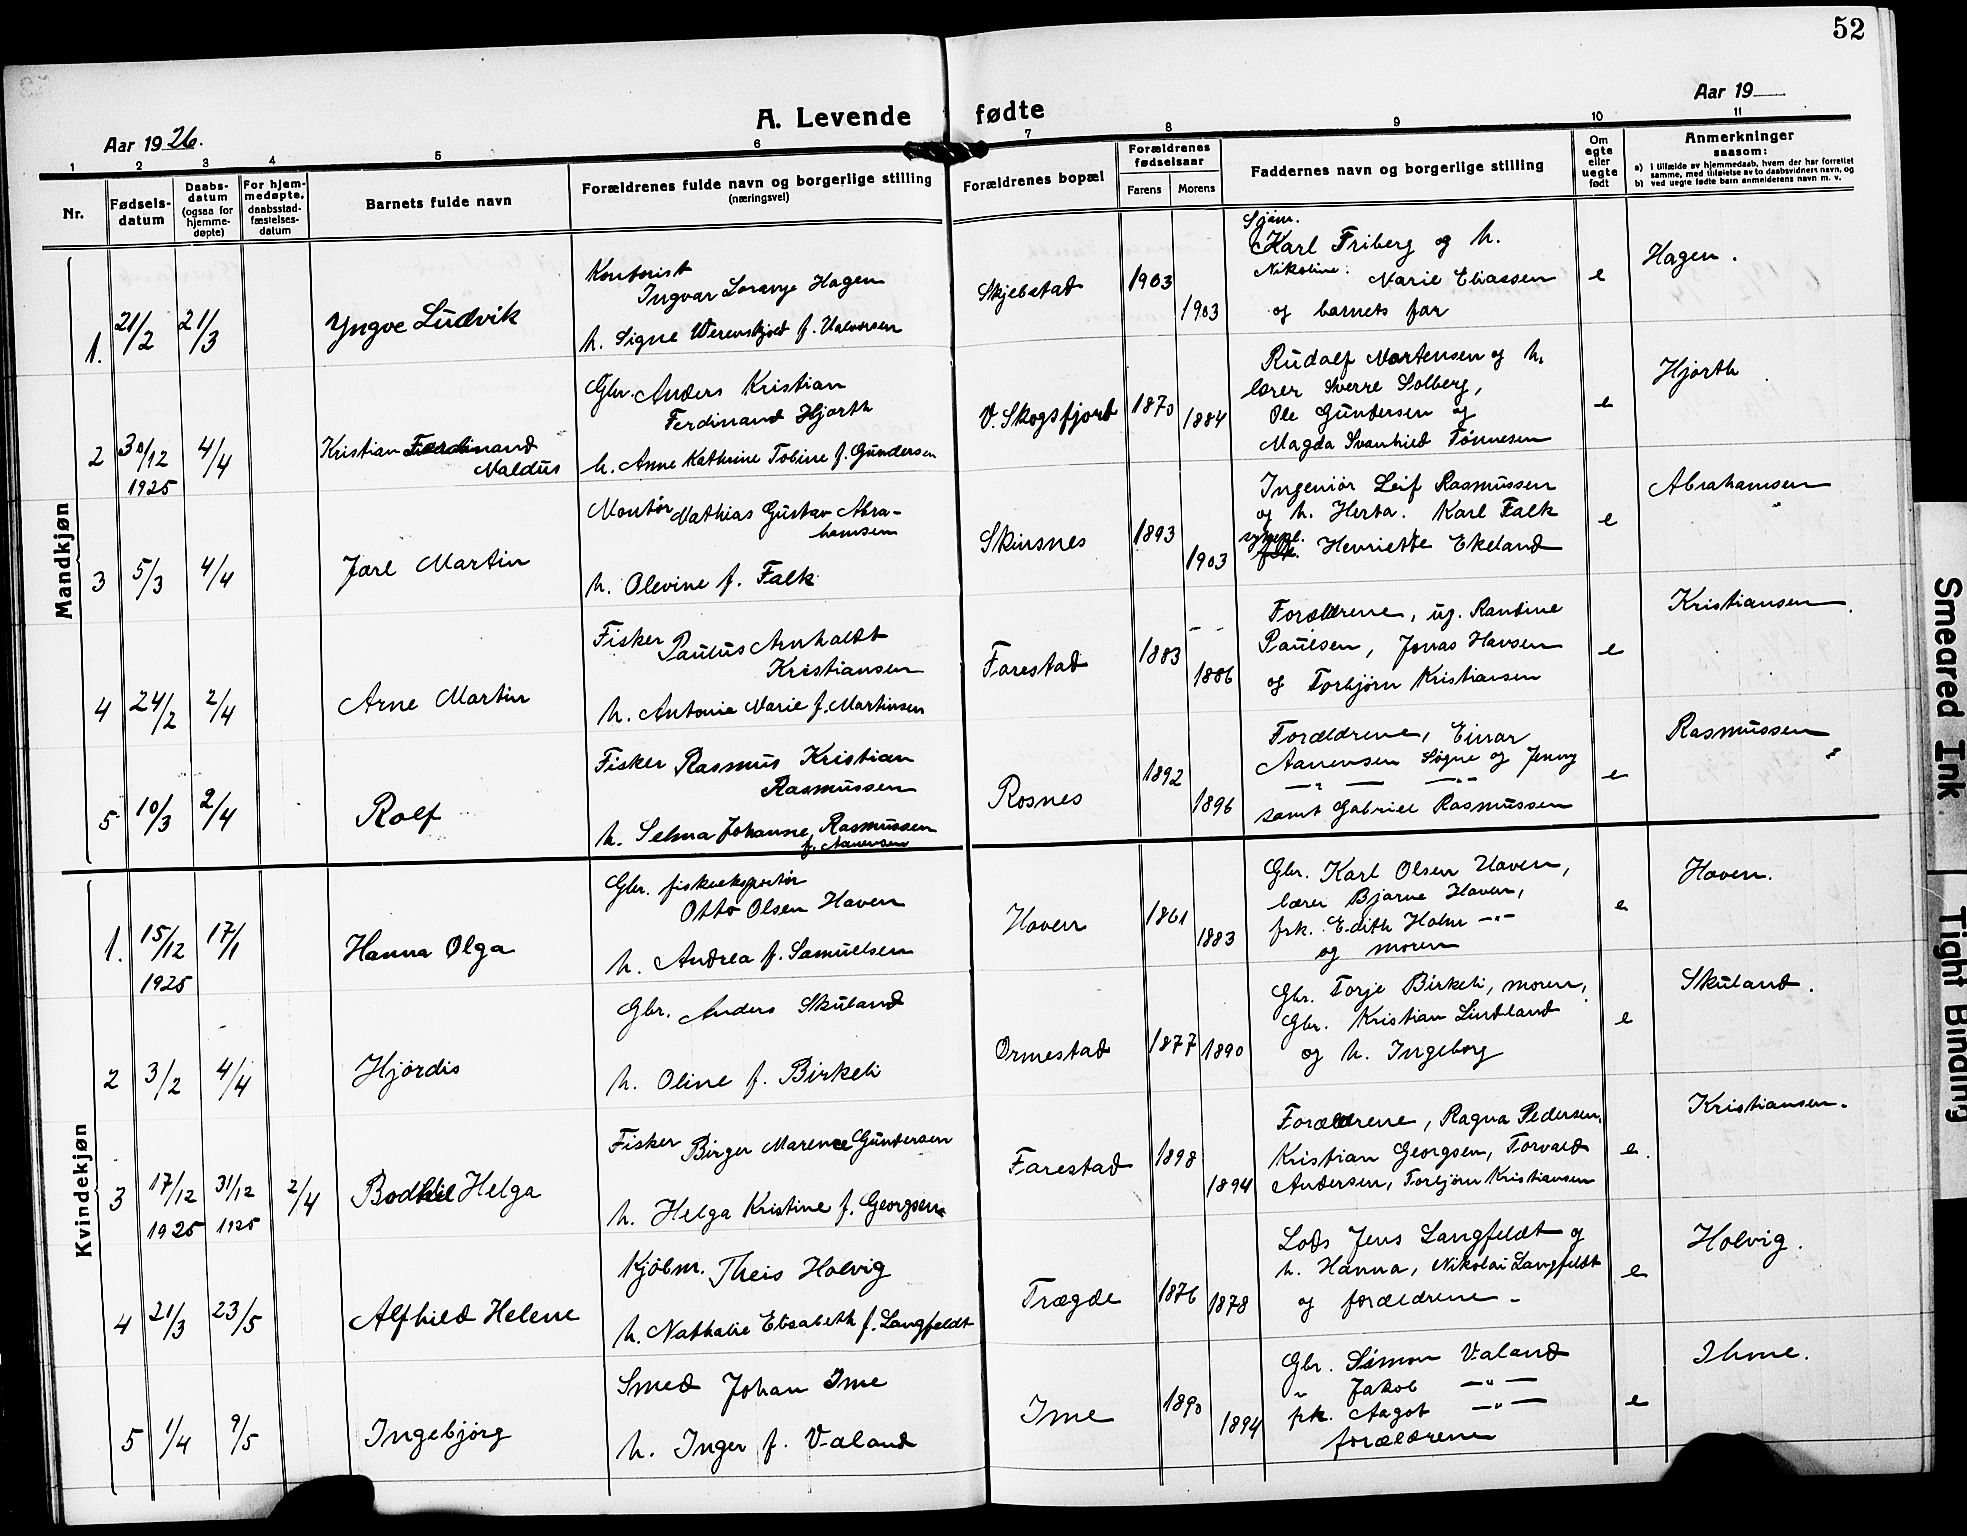 52
A. Levende fødte
Aar 1926.
Aar 19
1 2 3 4 5 6 7 8 9 10 11
Nr.
Fødsels-
datum
Daabs-
datum
(ogsaa for
hjemme-
døpte)
For hjem-
medøpte,
daabsstad-
fæstelses-
datum
Barnets fulde navn
Forældrenes fulde navn og borgerlige stilling
(næringsvei)
Forældrenes bopæl
Forældrenes
fødselsaar
Farens
Morens
Faddernes navn og borgerlige stilling
Om
egte
eller
uegte
født
Anmerkninger
saasom:
a) i tilfælde av hjemmedaab, hvem der har forrettet
samme, med tilføielse av to daabsvidners navn, og
b) ved uegte fødte barn anmelderens navn m. v.
Mandkjøn
1. 21/2 21/3
Yngve Ludvik
Kontorist
Ingvar Hagen
h. Signe f. Halvorsen
Skjebstad
1903
1903
Sjøm.
Karl Friberg og h.
Nikoline. Marie Eliassen
og barnets far
e
Hagen.
2 30/12 4/4
1925
Kristian Ferdinand
Valdus
Gbr. Anders Kristian
Ferdinand Hjorth
h. Anne Kathrine Tobine f. Gundersen
V. Skogsfjord
1870
1884
Rudolf Mortensen og h.
lærer Sverre Solberg,
Ole Gundersen og
Magda Svanhild Tønnesen
e
Hjorth
3 5/3 4/4
Jarl Martin
Montør Mathias Gustav Abra-
hamsen
h. Olevine f. Falk
Skinsnes
1893
1903
Ingeniør Leif Rasmussen
og h. Herta. Karl Falk
Henriette Ekeland
e
Abrahamsen
4 24/2 2/4
Arne Martin
Fisker Paulus Arnholdt
Kristiansen
h. Antonie Marie f. Martinsen
Farestad
1883
1886
Forældrene, ug. Rantine
Paulsen, Jonas Hansen
og Torbjørn Kristiansen
e
Kristiansen.
5 10/3 2/4
Rolf
Fisker Rasmus Kristian
Rasmussen
h. Selma Johanne Rasmussen
f. Aanensen
Rosnes
1892
1896
Forældrene, Einar
Aanensen Søgne og Jenny
— " — — " —
samt Gabriel Rasmussen
e
Rasmussen
Kvindekjøn
1. 15/12 17/1
1925
Hanna Olga
Gbr. fiskeeksportør
Otto Olsen Haven
h. Andrea f. Samuelsen
Haven
1861
1883
Gbr. Karl Olsen Haven,
lærer Bjarne Haven,
frk. Edith Holm — " —
og moren
e
Haven.
2 3/2 4/4
Hjørdis
Gbr. Anders Skuland
h. Oline f. Birkeli
Ormestad
1877
1890
Gbr. Torje Birkeli, moren,
Gbr. Kristian Lindland
og h. Ingeborg
e
Skuland.
3 17/12 31/12 2/4
1925 1925
Bodhil Helga
Fisker Birger Marence Gundersen
h. Helga Kristine f. Georgsen
Farestad
1898
1894
Forældrene, Ragna Pedersen,
Kristian Georgsen, Torvald
Andersen, Torbjørn Kristiansen
e.
Kristiansen.
4 21/3 23/5
Alfhild Helene
Kjøbm. Theis Holvig
h. Nathalie Elisabeth f. Langfeldt
Trægde
1876
1878
Lods Jens Langfeldt og
h. Hanna, Nikolai Langfeldt
og forældrene -
e
Holvig.
5 1/4 9/5
Ingebjørg
Smed Johan Ime
h. Inger f. Valand
Ime
1890
1894
Gbr. Simon Valand
" Jakob — " —
frk. Aagot — " —
forældrene
e
Ihme.
Smeared Ink.
Tight Binding